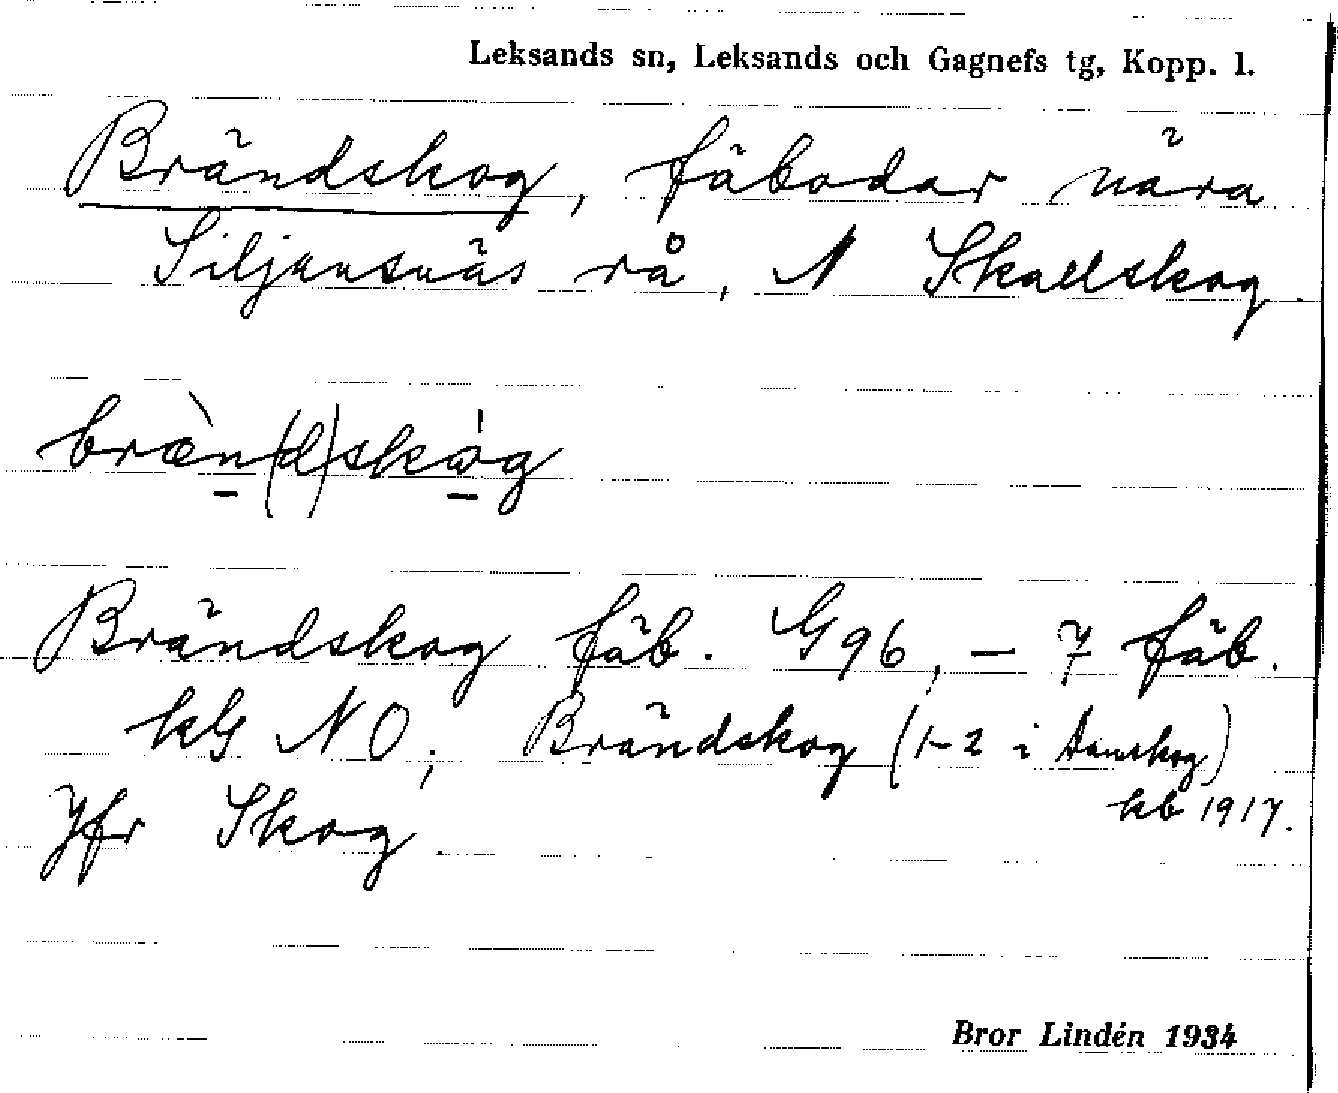 Leksands sn, Leksands och Gagnefs tg, Kopp. l.
Brändskog, fäbodar nära
Siljansnäs rå, N Skallskog.
bræ̀n(d)skòg
Brändskog fäb. G96, – 7 fäb.
kG NO; Brändskog (1-2 i Danskog)
kb 1917.
Jfr Skog.
Bror Lindén 1934